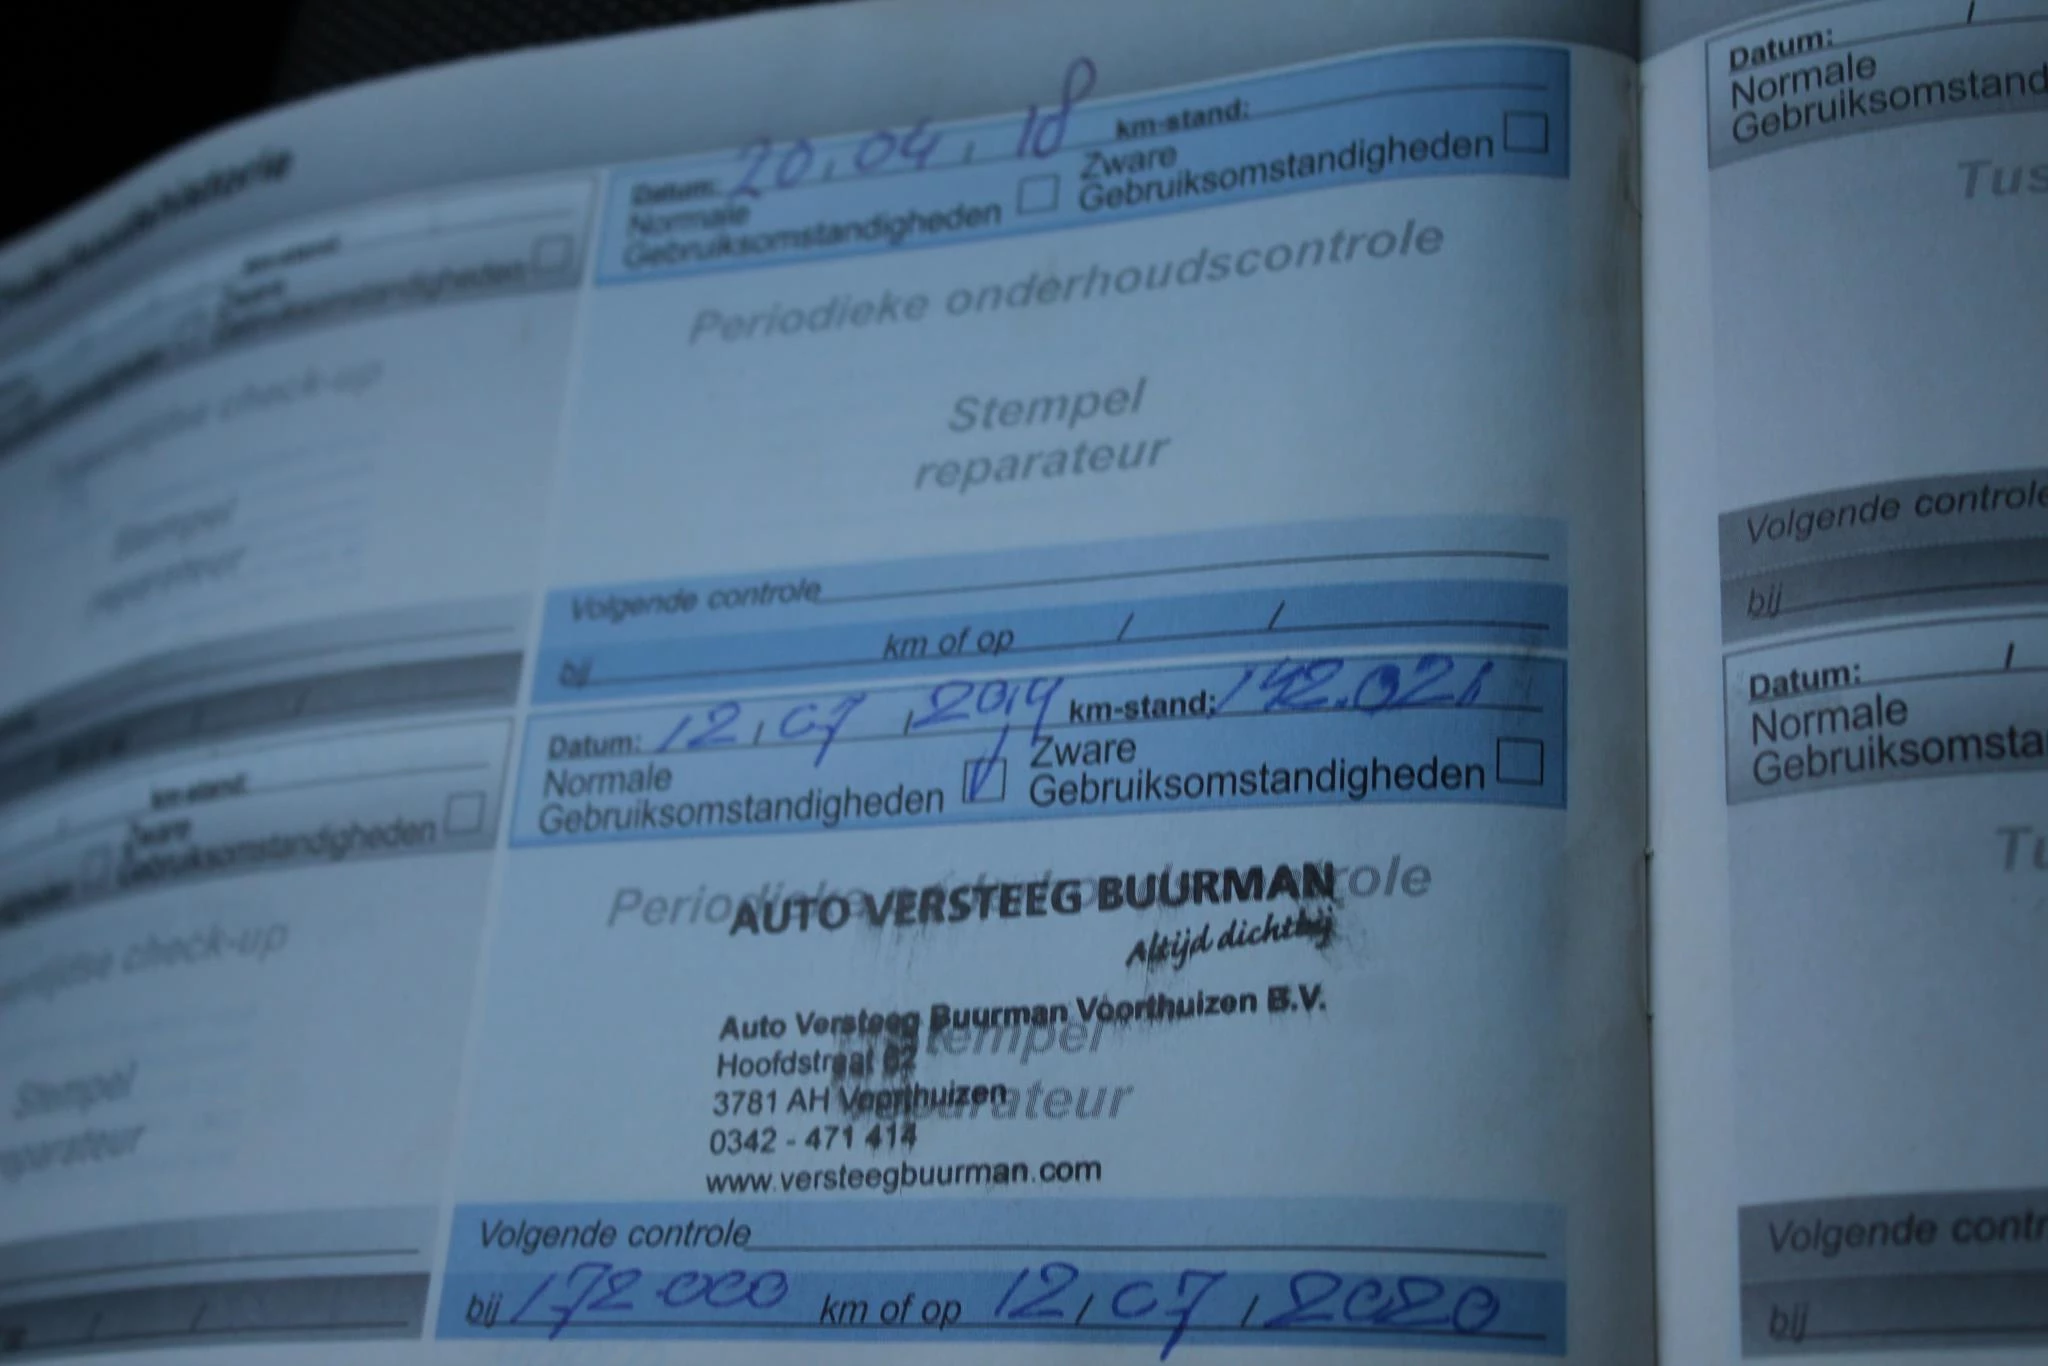 Datum: 20.04.18 km-stand:
Normale
Gebruiksomstandigheden
Zware
Gebruiksomstandigheden
Periodieke onderhoudscontrole
Stempel
reparateur
Volgende controle
bij km of op / /
Datum: 12.07.2019 km-stand: 142.021
Normale
Gebruiksomstandigheden
Zware
Gebruiksomstandigheden
AUTO VERSTEEG BUURMAN
Altijd dichtbij
Auto Versteeg Buurman Voorthuizen B.V.
Hoofdstraat 62
3781 AH Voorthuizen
0342 - 471 414
www.versteegbuurman.com
Volgende controle
bij 172.000 km of op 12/07/2020
km-stand:
Zware
Gebruiksomstandigheden
check-up
Stempel
reparateur
km-stand:
Zware
Gebruiksomstandigheden
check-up
Stempel
Datum: /
Normale
Volgende controle
bij
Datum: /
Normale
Volgende
bij